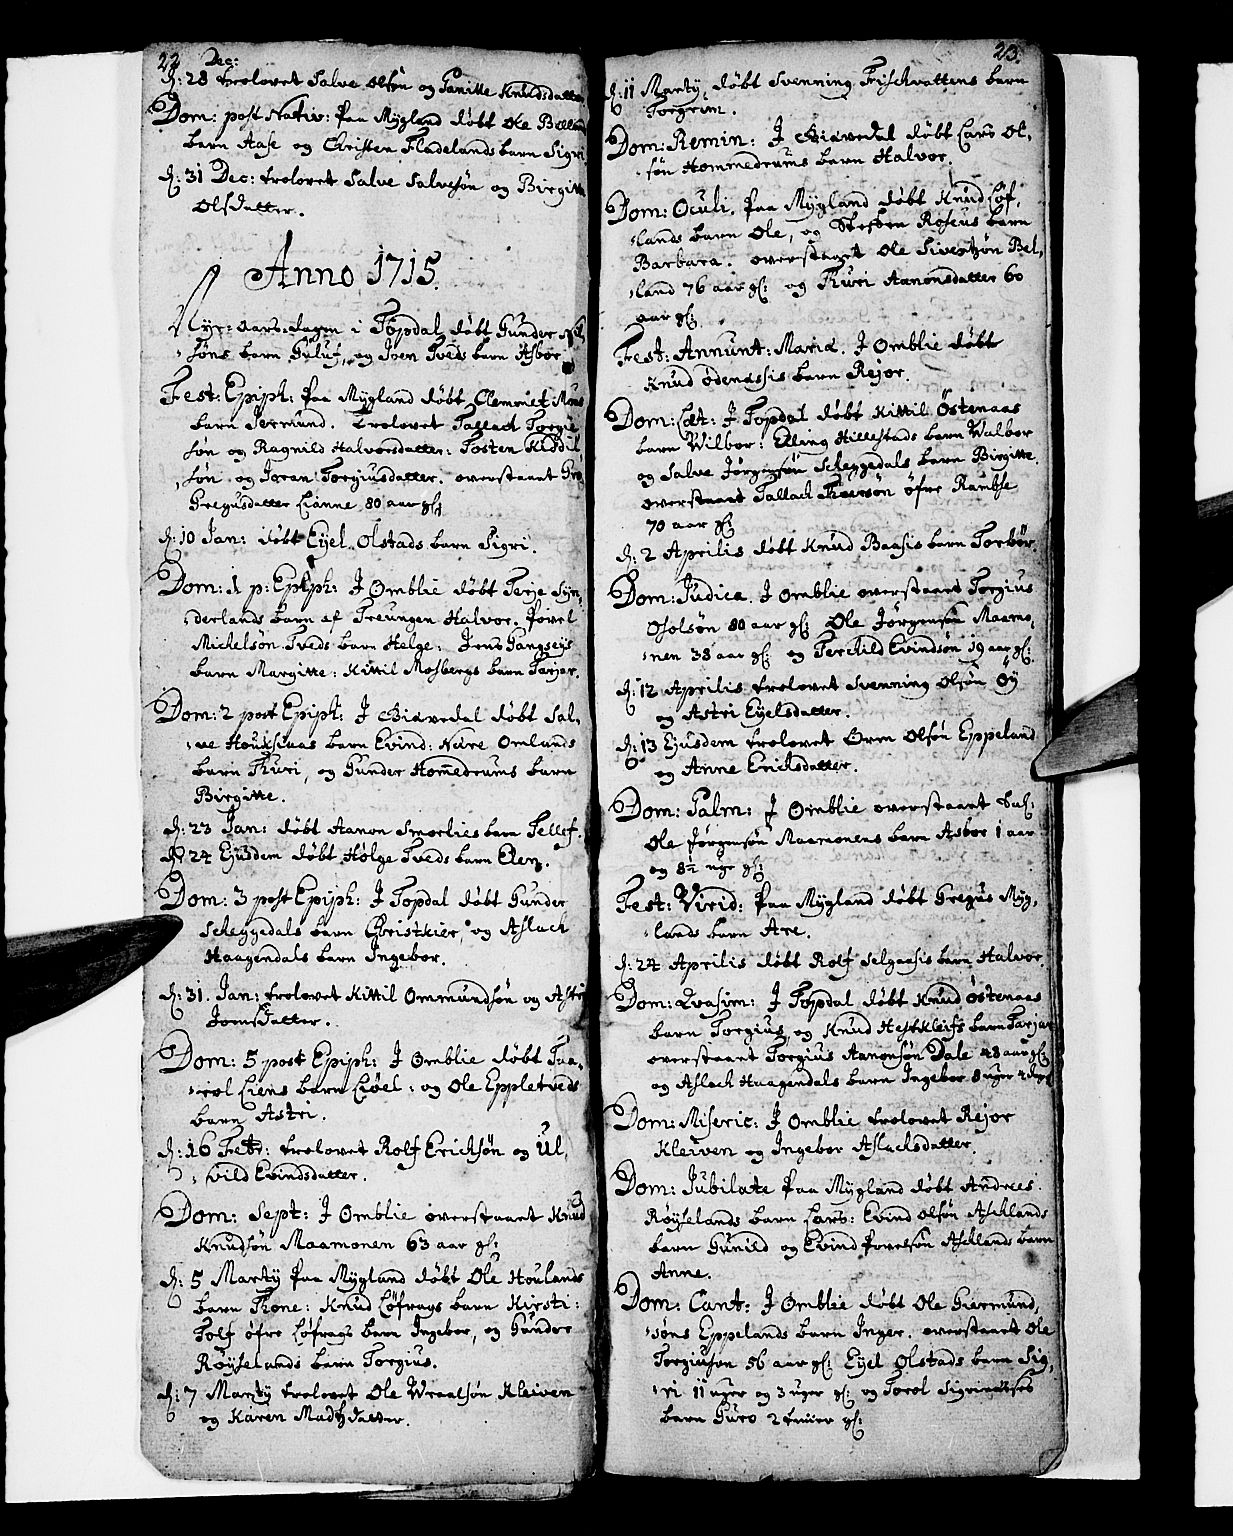 22 Dec:
d: 28 trolovet Salve Olsøn og Tanitte Knudsdatter
Dom: post Nativ: paa Mygland døbt Ole Belland
barn Aase og Christen Fladelands barn Sigri
d: 31 Dec: trolovet Salve Salvesøn og Birgitte
Olsdatter.
Anno 1715.
Nye-aars-dagen i Topdal døbt Gunder
søns barn Gyluf, og Iven Tveds barn Asbør
Fest: Epiph: paa Mygland døbt Clemmet
barn Jermund. Trolovet Tallach Torgie
søn og Ragnild Halvorsdatter: Tosten Kiddil
søn og Joran Torgiusdatter. overstaaet
Gregusdatter Lianne 80 aar gl:
d: 10 Jan: døbt Eyel Olstads barn Sigri.
Dom: 1 p: Epiph: J Omblie døbt Terje Syn-
derlands barn af Treungen Halvor. Povel
Michelsøn Tveds barn Helge: Jens Gangseys
barn Margitte: Kittil Mosbergs barn Tarjer.
Dom: 2 post Epiph: J Giøvedal døbt Sal-
ve Houslaas barn Evind: Nere Omlands
barn Thuri, og Gunder Hommedrums barn
Birgitte.
d: 23 Jan: døbt Aanon Smørlies barn Tellef.
d: 24 Ejusdem døbt Hølge Tveds barn Elen.
Dom: 3 post Epiph: J Topdal døbt Gunder
Scheggedals barn Christkier, og Aslach
Haagendals barn Ingebor.
d: 31. Jan: trolovet Kittil Ommundsøn og Astri
Jomsdatter.
Dom: 5 post Epiph: J Omblie døbt Taa-
rol Liens barn Liøel: og Ole Eppletveds
barn Astri.
d: 16 Febr: trolovet Rolf Ericksøn og Ul-
vild Evindsdatter.
Dom: Sept: J Omblie overstaaet Knud
Knudsøn Maamonen 63 aar gl:
d: 5 Marty paa Mygland døbt Ole Houlands
barn Thone: Knud Løfrags barn Kirsti:
Tolf øfre Løfrags barn Ingebor, og Gunder
Røyselands barn Torgius.
d: 7 Marty trolovet Ole Wraalsøn Kleiven
og Karen Madtzdatter.
23.
d: 11 Marty, døbt Svenning Frischvattens barn
Torgrim.
Dom: Remin: J Giøvedal døbt Lars Ol-
søn Hommedrums barn Halvor.
Dom: Oculi, paa Mygland døbt Knud Løf-
lands barn Ole, og Steffen Roseus barn
Barbara. overstaaet Ole Sivertzøn Bel-
land 76 aar gl: og Thuri Aanonsdatter 60
aar gl:
Fest: Annunt: Mariæ. J Omblie døbt
Knud Ødenaasis barn Rejor.
Dom: Læt: J Topdal døbt Kittil Østenaas
barn Wilbor: Elling Hillestads barn Walbor
og Salve Jørgensøn Scheggedals barn Birgitte.
overstaaet Tallach Thorsøn øfre Ramse
70 aar gl:
d: 2 Aprilis døbt Knud Baasis barn Torbør.
Dom: Judica. J Omblie overstaaet Torgius
Osolsøn 80 aar gl: Ole Jørgensøn Maamo-
nen 38 aar gl: og Terchild Evindsøn 19 aar gl:
d: 12 Aprilis trolovet Svenning Olsøn Øy
og Astri Eyelsdatter.
d: 13 Ejusdem trolovet Orm Olsøn Eppeland
og Anne Ericksdatter.
Dom: Palm: J Omblie overstaaet Sal:
Ole Jørgensøn Maamonens barn Asbor 1 aar
og 8½ uge gl:
Fest: Virid: paa Mygland døbt Gregus Myg-
lands barn Are.
d: 24 Aprilis døbt Rolf Selgaasis barn Halvor.
Dom: Qvasim: J Topdal døbt Knud Østenaas
barn Torgius, og Knud Hestkleifs barn Tarjer
overstaaet Torgius Aanonsøn Dale 48 aar gl:
og Aslach Haagendals barn Ingebor 8 uger 4 dage
Dom: Miseric: J Omblie trolovet Rejor
Kleiven og Ingebor Aslachsdatter.
Dom: Jubilate paa Mygland døbt Andrees
Røyselands barn Lars: Evind Olsøn Aschlands
barn Gunild og Evind Povelsøn Aschlands barn
Anne.
Dom: Cant: J Omblie døbt Ole Giermund-
søns Eppelands barn Inger. overstaaet Ole
Torgiusøn 56 aar gl: Eyel Olstads barn Sig-
ri 11 uger og 3 uger gl: og Torol Sigrinæses
barn Guro 2 timer gl: